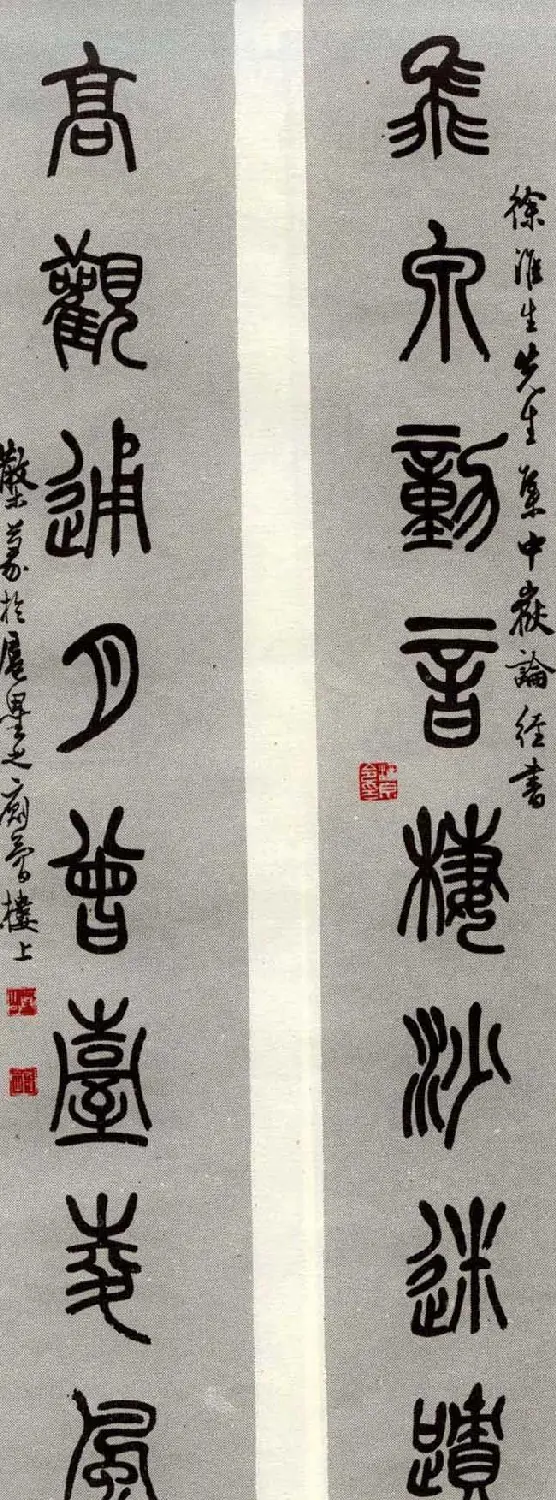 徐淮生先生集中嶽論經書
飛泉動音棲沙迷蹟
高觀通月曾臺夌風
篆於扈之樓上